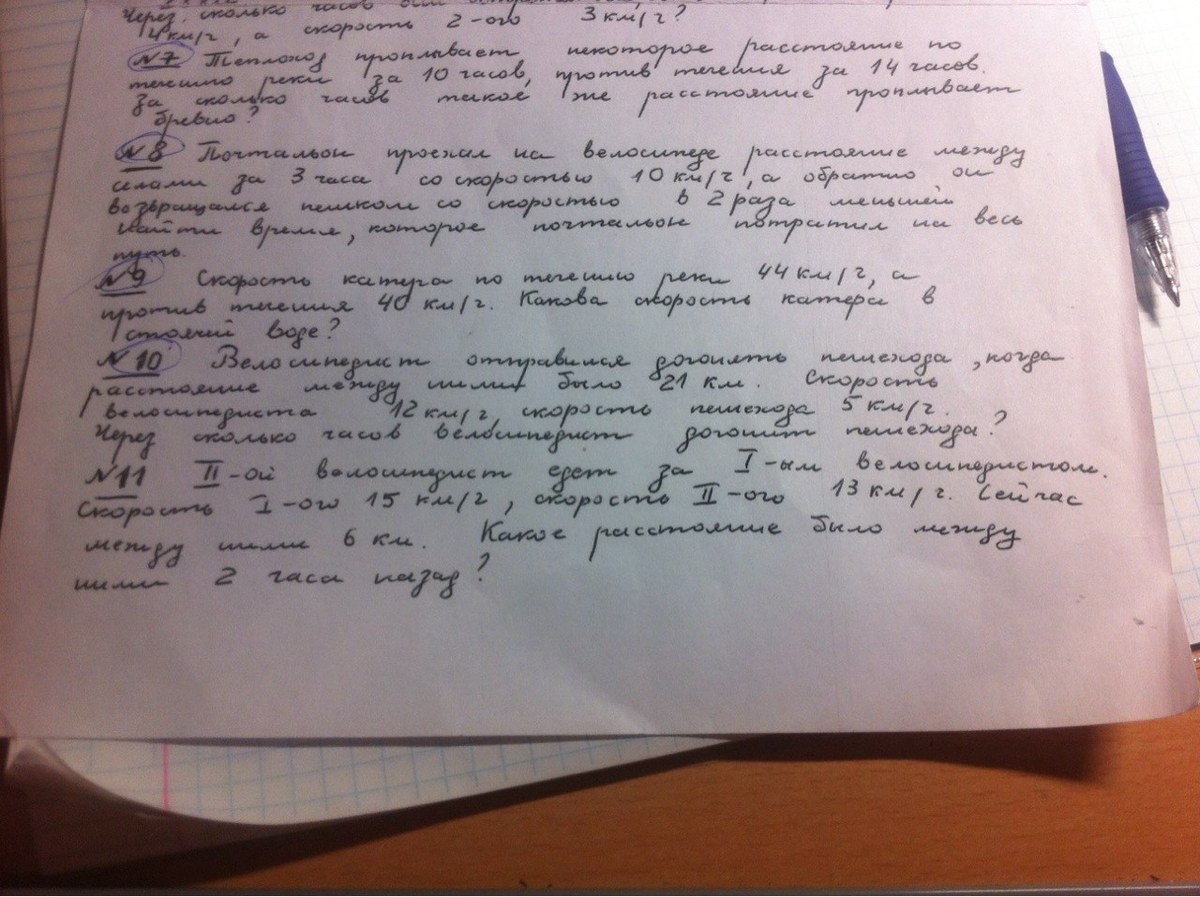 Через сколько часов
4км/г, а скорость 2-ого 3км/г?
№7 Теплоход проплывает некоторое расстояние по
течению реки за 10 часов, против течения за 14 часов.
За сколько часов такое же расстояние проплывает
бревно?
№8 Почтальон проехал на велосипеде расстояние между
селами за 3 часа со скоростью 10 км/г, а обратно он
возвращался пешком со скоростью в 2 раза меньшей
Найти время, которое почтальон потратил на весь
путь.
№9 Скорость катера по течению реки 44 км/г, а
против течения 40 км/г. Какова скорость катера в
стоячей воде?
№10 Велосипедист отправился догонять пешехода, когда
расстояние между ними было 21 км. Скорость
велосипедиста 12 км/г, скорость пешехода 5 км/г.
Через сколько часов велосипедист догонит пешехода?
№11 II-ой велосипедист едет за I-ым велосипедистом.
Скорость I-ого 15 км/г, скорость II-ого 13 км/г. Сейчас
между ними 6 км. Какое расстояние было между
ними 2 часа назад?